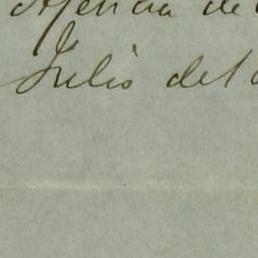 Agencia de
Julio del